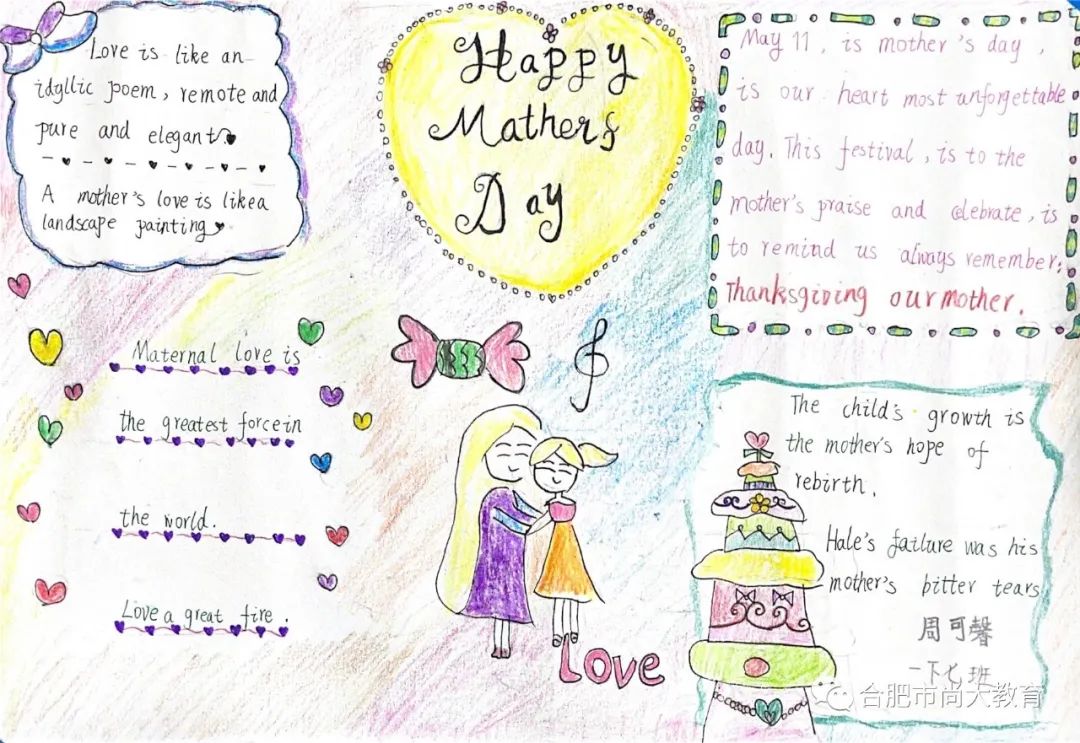 Love is like an
idyllic poem, remote and
pure and elegant
A mother's love is likea
landscape painting
Happy
Mathers
Day
May 11, is mother's day,
is our heart most unforgettable
day. This festival, is to the
mother's praise and celebrate, is
to remind us always remember:
Thanksgiving our mother.
Maternal love is
the greatest forcein
the world.
Love a great fire.
Love
The child's growth is
the mother's hope of
rebirth.
Hale's failure was his
mother's bitter tears
周可馨
一下七班
合肥市尚大教育